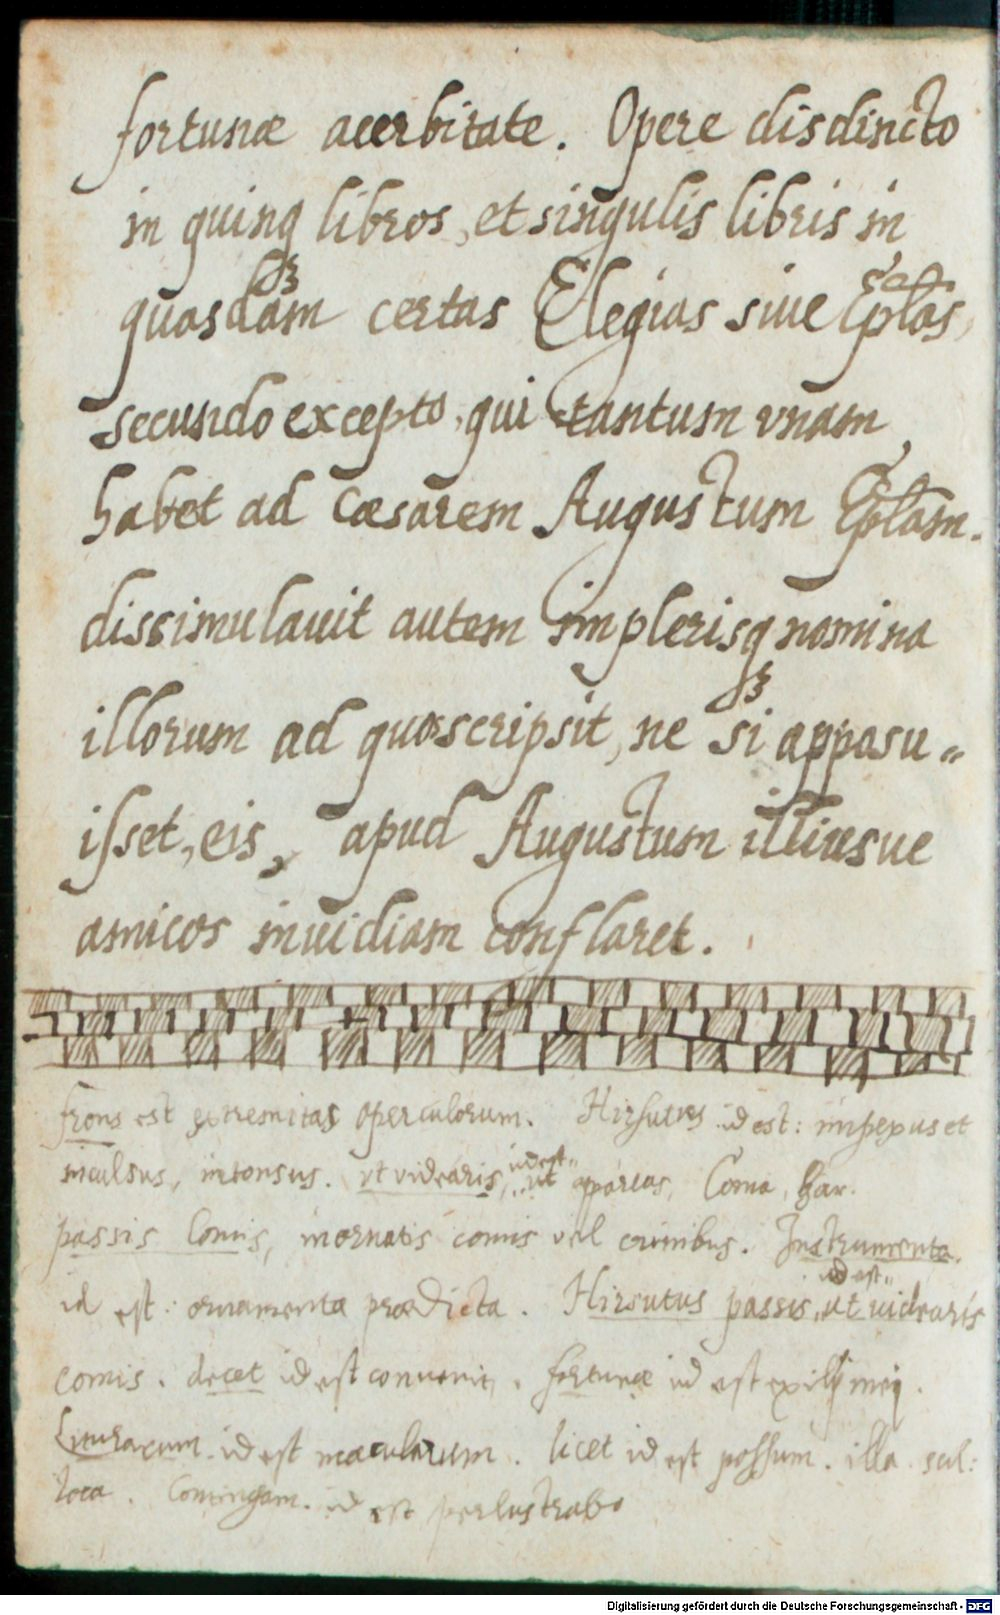 fortunæ acerbitate. Opere disdincto
in quinqꝫ libros, et singulis libris in
quasdam certas Elegias siue Eplas,
secundo excepto, qui tantum vnam
habet ad Cæsarem Augustum Eplam.
dissimulauit autem in plerisqꝫ nomina
illorum ad quos scripsit, ne si apposu„
isset, eis, apud Augustum illiusue
amicos inuidiam conflaret.
frons est extremitas operculorum. Hirsutus id est: impexus et
incultus, intonsus. vt videaris, id est„ ut appareas, Coma,
passis Comis, inornatis comis vel crinibus. Instrumenta.
id est: ornamenta prædicta. Hirsutus passis, id est„ ut uidearis
comis. decet id est conuenit, fortunæ id est exilij mei.
Liturarum id est macularum. licet id est possum. illa scil:
loca. Contingam. id est perlustrabo
Digitalisierung gefördert durch die Deutsche Forschungsgemeinschaft - DFG